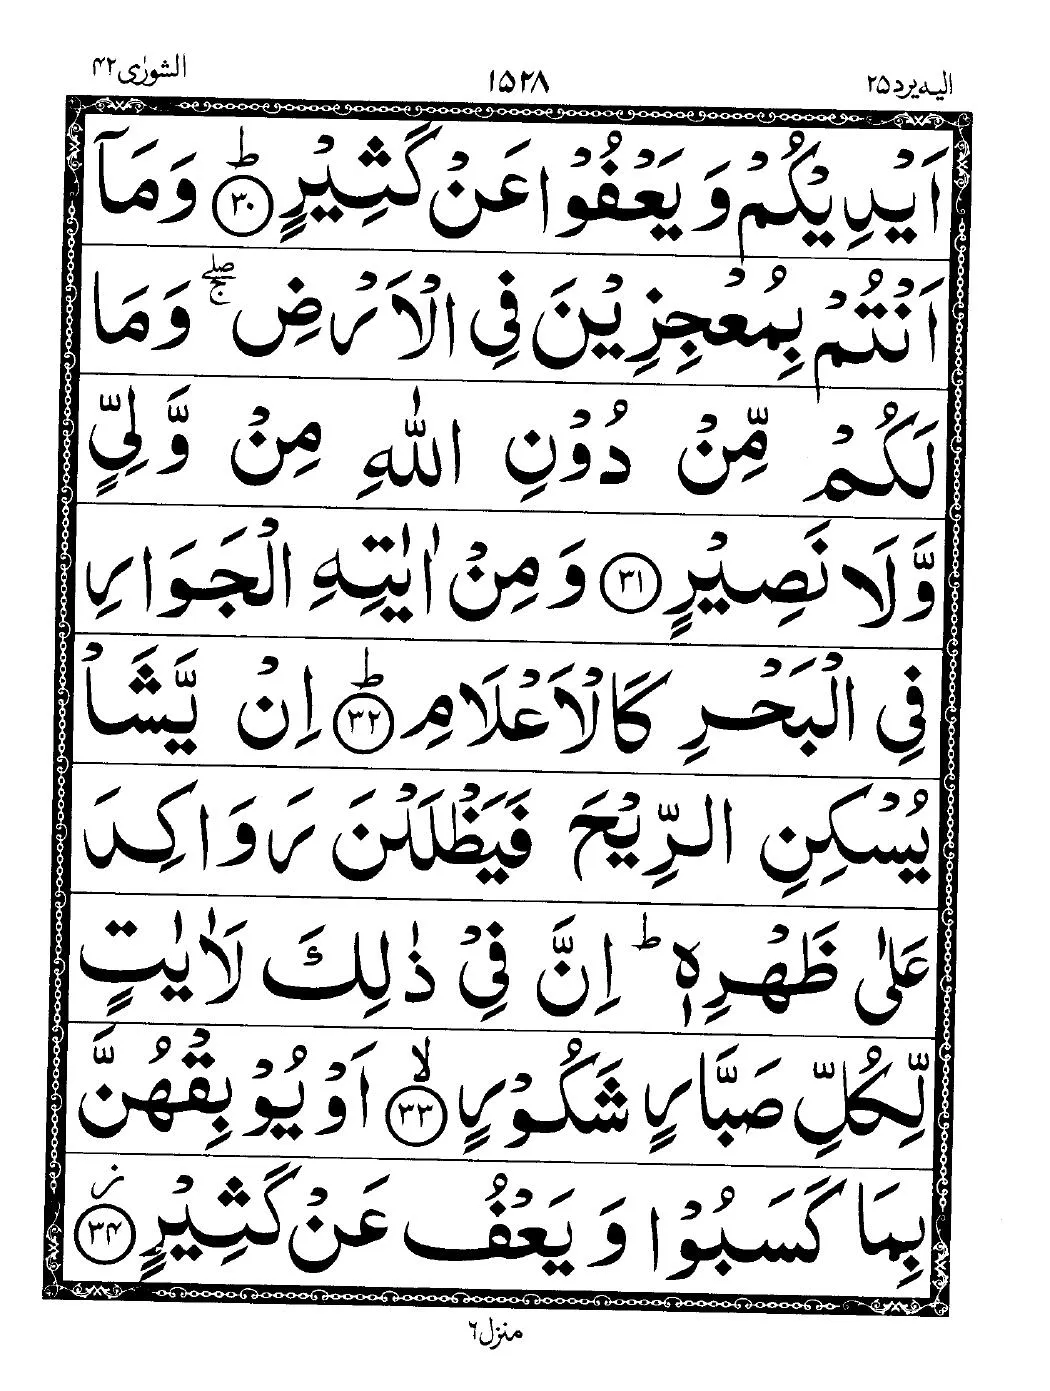 الیه یرد ۲۵ ۱۵۲۸ الشورٰی ۴۲
اَیْدِیْكُمْ وَ یَعْفُوْا عَنْ كَثِیْرٍ ﴿۳۰﴾ؕ وَ مَاۤ
اَنْتُمْ بِمُعْجِزِیْنَ فِی الْاَرْضِ ۖۚ وَ مَا
لَكُمْ مِّنْ دُوْنِ اللّٰهِ مِنْ وَّلِیٍّ
وَّ لَا نَصِیْرٍ ﴿۳۱﴾ وَ مِنْ اٰیٰتِهِ الْجَوَارِ
فِی الْبَحْرِ كَالْاَعْلَامِ ﴿۳۲﴾ؕ اِنْ یَّشَاْ
یُسْكِنِ الرِّیْحَ فَیَظْلَلْنَ رَوَاكِدَ
عَلٰی ظَهْرِهٖ ؕ اِنَّ فِیْ ذٰلِكَ لَاٰیٰتٍ
لِّكُلِّ صَبَّارٍ شَكُوْرٍ ﴿۳۳﴾ۙ اَوْ یُوْبِقْهُنَّ
بِمَا كَسَبُوْا وَ یَعْفُ عَنْ كَثِیْرٍ ﴿۳۴﴾ز
منزل ۶